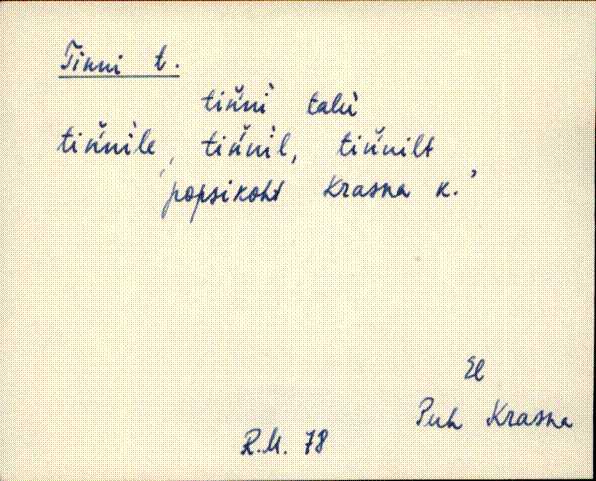 Tinni t.
tiňni talu
tiňnile, tiňnil, tiňnilt
'popsikoht Krasna k.'
El
Puh Krasna
R.M. 78